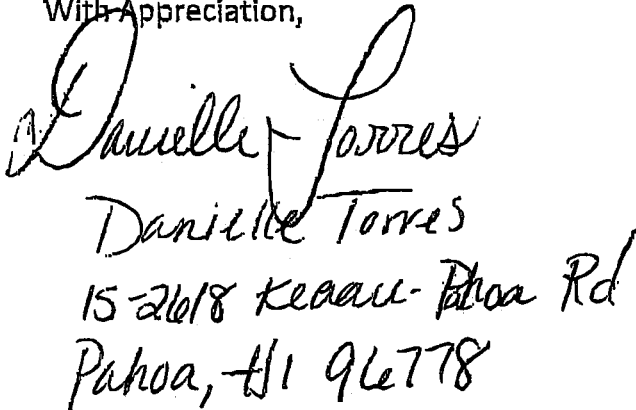 With Appreciation,
Danielle Torres
Danielle Torres
15-2618 Keaau-Pahoa Rd
Pahoa, HI 96778